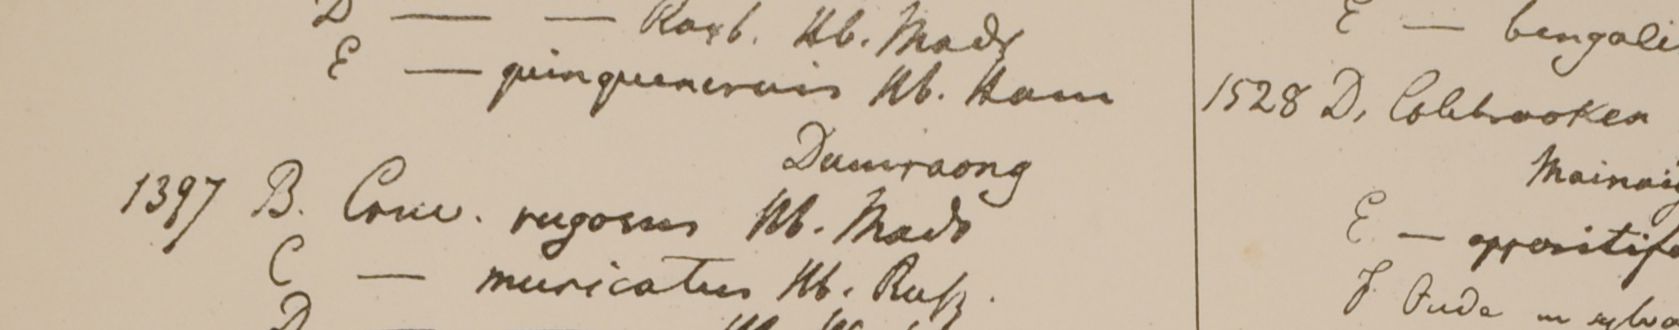 D — — Roxb. Hb. Madr
E — quinquenervis Hb. Ham
Dumraong
1397 B. Conv. rugosus Hb. Madr
C — muricatus Hb. Russ.
D
E — bengali
1528 D, Colebrookea
E — oppositifo
F Oude in sylva